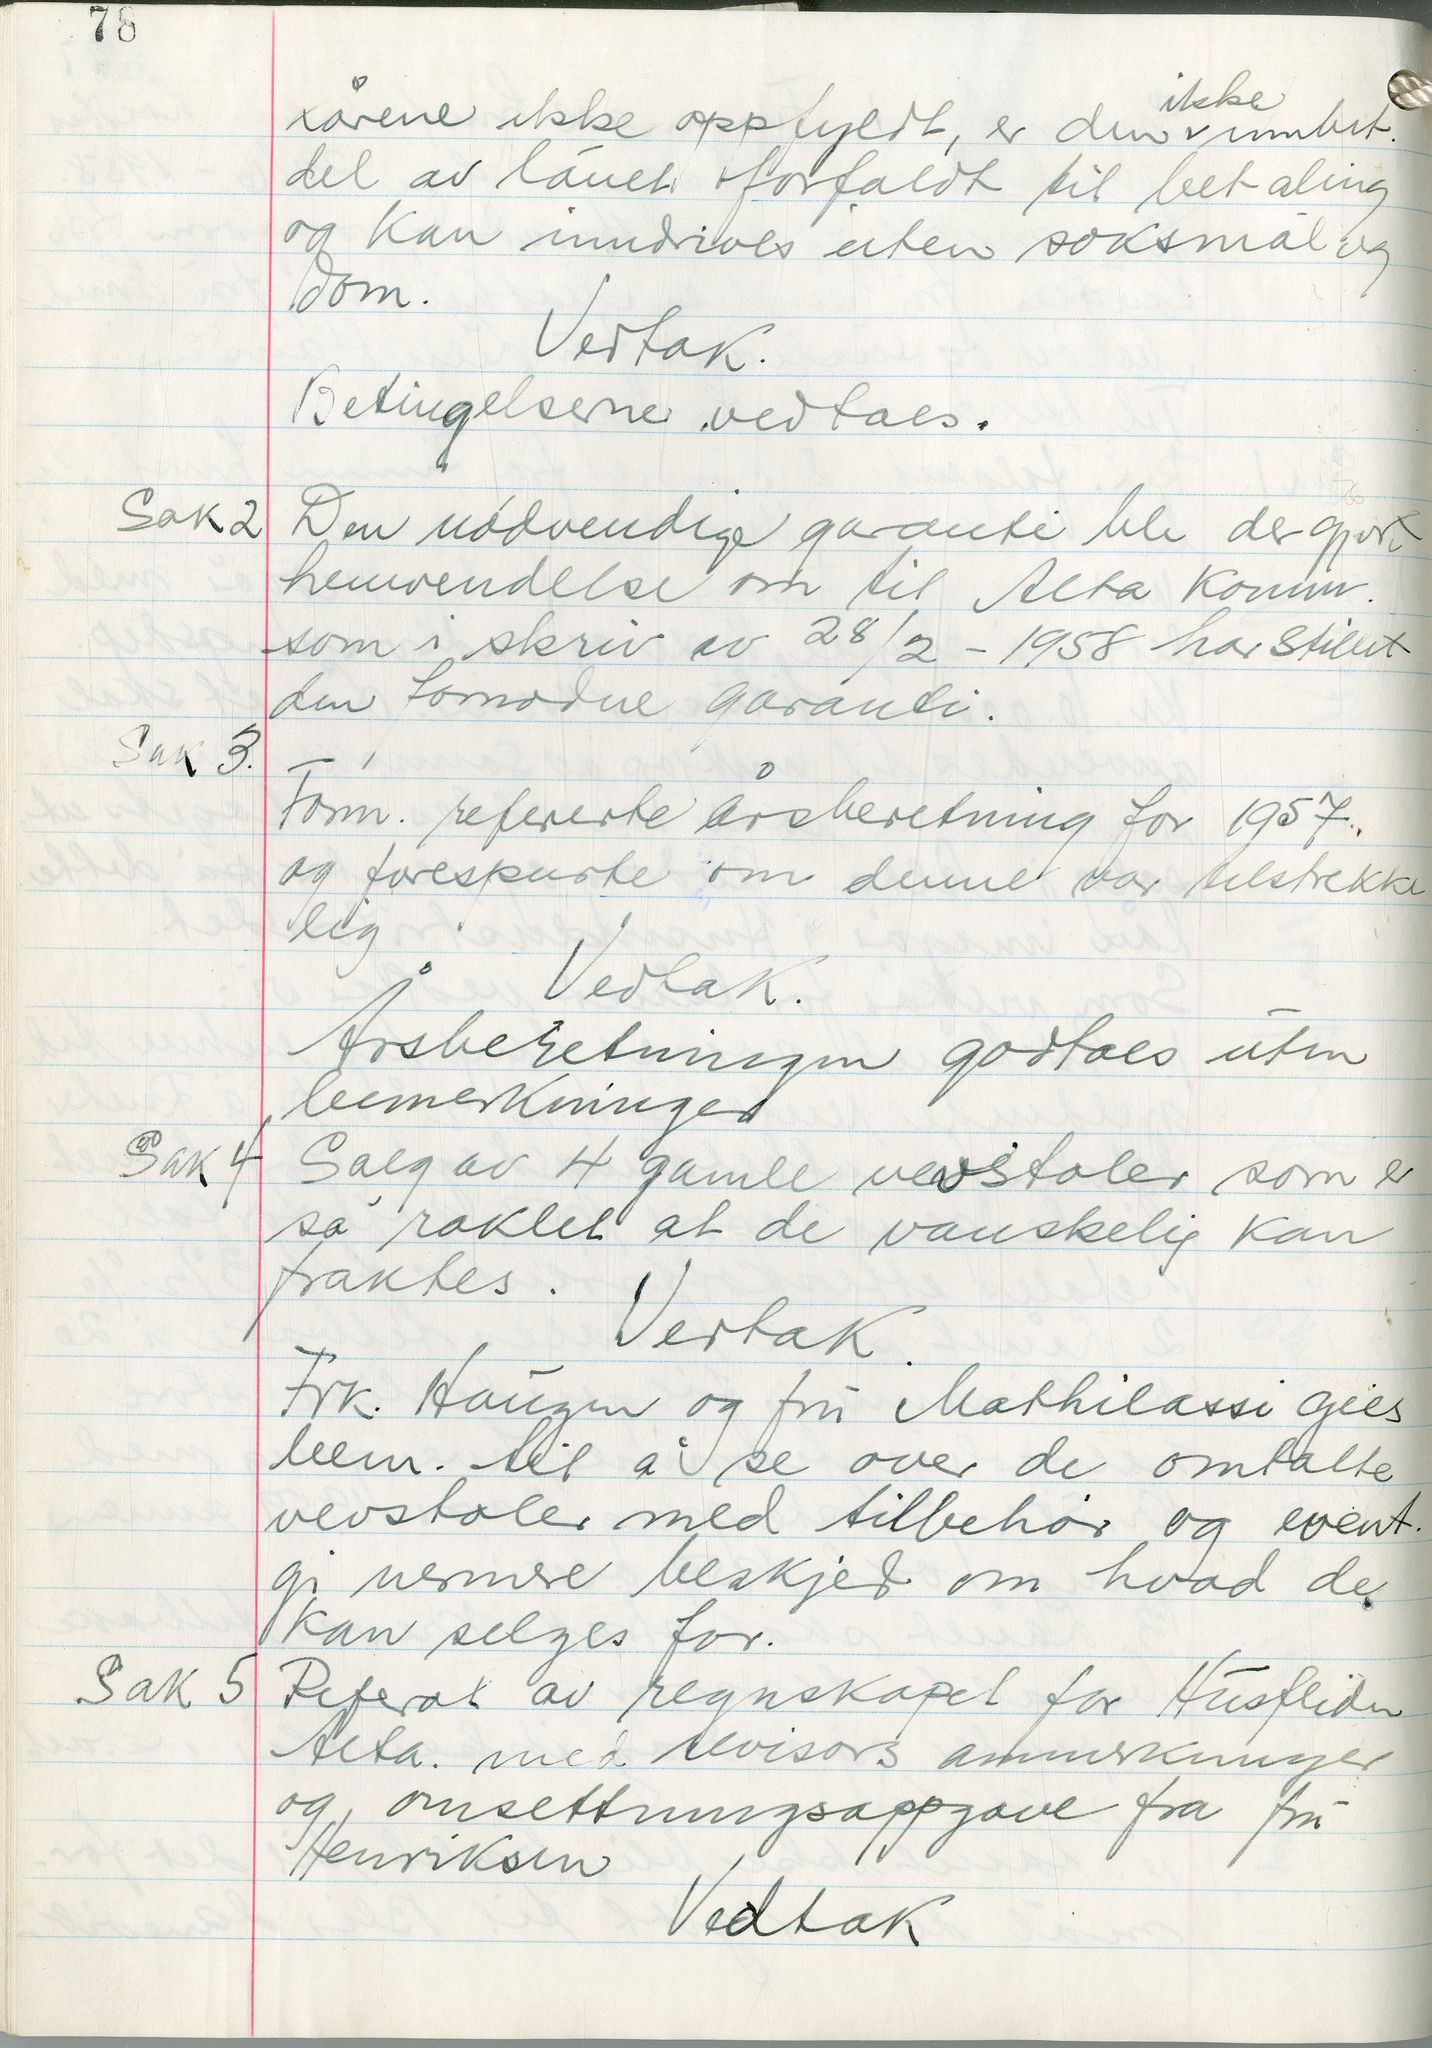 78
kårene ikke oppfyldt, er den ikke innbet.
del av lånet forfaldt til betaling
og kan inndrives uten søksmål og
dom.
Vedtak.
Betingelserne vedtaes.
Sak 2 Den nødvendige garanti ble der gjort
henvendelse om til Alta Komm.
som i skriv av 28/2 - 1958 har stillet
den fornødne garanti.
Sak 3.
Form. refererte årsberetning for 1957.
og forespurte om denne var tilstrekke
lig
Vedtak.
Årsberetningen godtaes uten
bemerkninger
Sak 4 Salg av 4 gamle vevstoler som er
så raklet at de vanskelig kan
fraktes.
Vedtak.
Frk. Haugen og fru Mathilassi gies
bem. til å se over de omtalte
vevstoler med tilbehør og event.
gi nermere beskjed om hvad de
kan selges for.
Sak 5 Referat av regnskapet for Husfliden
Alta. med revisors anmerkninger
og omsettningsoppgave fra fru
Henriksen
Vedtak